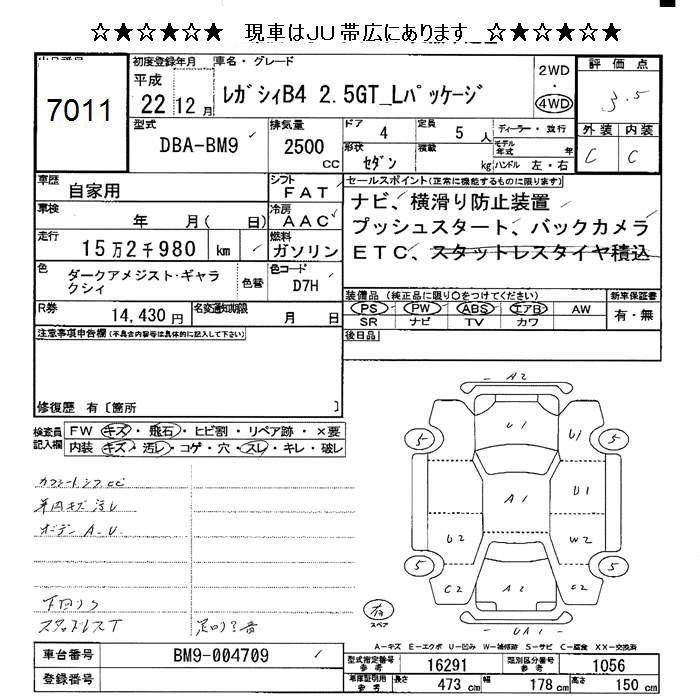 ☆★☆★☆★ 現車はＪＵ帯広にあります ☆★☆★☆★
出品番号
7011
初度登録年月
平成
22 12 月
車名・グレード
レガシィB4 2.5GT_Lパッケージ
2WD
・
4WD
評価点
3.5
外装 内装
C C
型式
DBA-BM9
排気量
2500
CC
ドア 4
定員 5 人
ディーラー・並行
モデル年式 年
形状 セダン
積載 kg
ハンドル 左・右
車歴
自家用
シフト
FAT
車検
年 月( 日)
冷房
AAC
走行
15万2千980 km
燃料
ガソリン
色
ダークアメジスト・ギャラクシィ
色替
色コード
D7H
R券
14,430 円
名変通知期限
月 日
セールスポイント(正常に機能するものに限ります)
ナビ、横滑り防止装置
プッシュスタート、バックカメラ
ETC、スタットレスタイヤ積込
装備品 (純正品に限り○をつけてください)
新車保証書
PS PW ABS エアB AW
SR ナビ TV カワ
有・無
後日品
注意事項申告欄(不具合内容等は具体的に記入して下さい)
修復歴 有〔箇所 〕
検査員記入欄
FW キズ・飛石・ヒビ割・リペア跡・×要
内装 キズ・汚レ・コゲ・穴・スレ・キレ・破レ
A2
U1
U1
5
5
A1
U1
U2
W2
5
5
C2
A2
C2
UA1
有
スペア
内キズ 汚レ
ボデー A.U
下回り
スタッドレスT
A-キズ E-エクボ U-凹み W-補修跡 S-サビ C-腐食 XX-交換済
車台番号
BM9-004709
登録番号
型式指定番号 参考
16291
類別区分番号 参考
1056
車庫証明用 参考
長さ 473 cm
幅 178 cm
高さ 150 cm